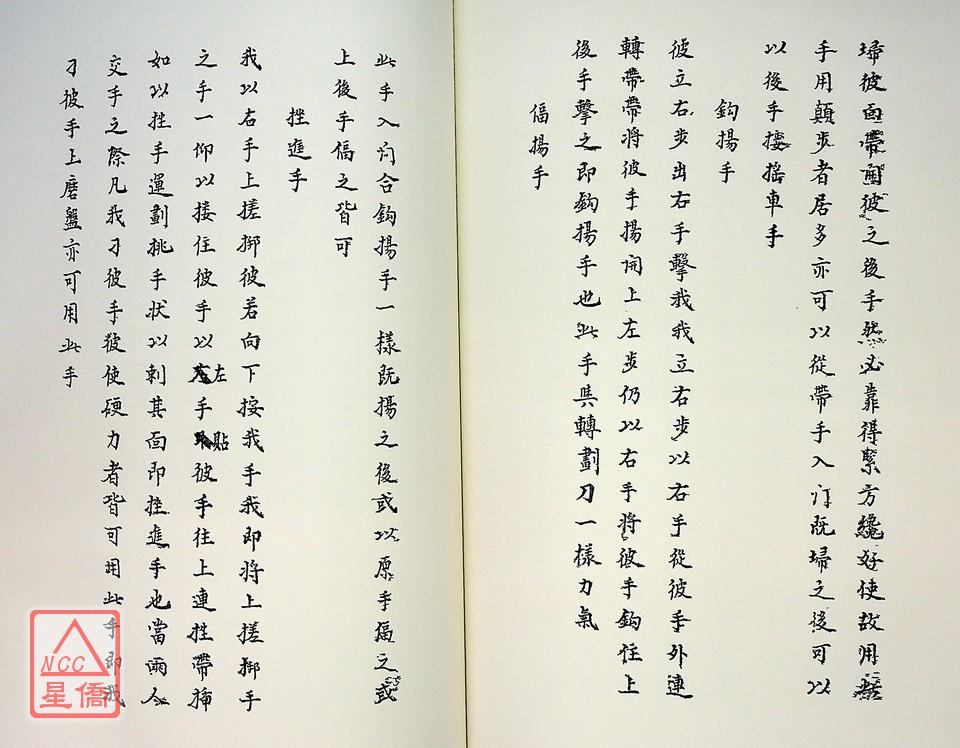 埽彼面帶面彼之後手然必靠得緊方纔好使故用
手用顛步者居多亦可以從帶手入門既埽之後可以
以後手摟摇車手
鈎揚手
彼立右步出右手擊我我立右步以右手從彼手外連
轉帶帶將彼手揚開上左步仍以右手將彼手鈎住上
後手擊之即鈎揚手也此手與轉劃刀一樣力氣
偪揚手
此手入门合鈎揚手一樣既揚之後或以原手偪之或
上後手偪之皆可
挫進手
我以右手上搓挪彼若向下按我手我即將上搓挪手
之手一仰以接住彼手以左手貼彼手往上連挫帶揷
如以挫手運劃挑手狀以刺其面即挫進手也當兩人
交手之際凡我刁彼手彼使硬力者皆可用此手即我
刁彼手上磨盤亦可用此手
NCC
星僑